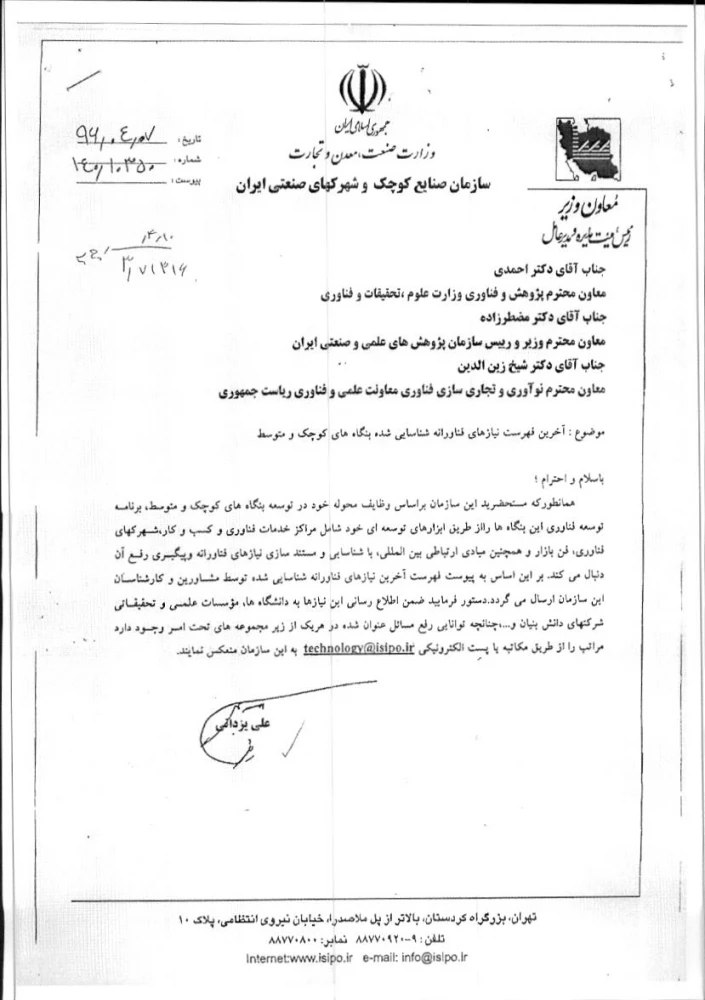 جمهوری اسلامی ایران
وزارت صنعت، معدن و تجارت
سازمان صنایع کوچک و شهرکهای صنعتی ایران
تاریخ:
شماره:
پیوست:
معاون وزیر
رئیس هیئت مدیره و مدیرعامل
جناب آقای دکتر احمدی
معاون محترم پژوهش و فناوری وزارت علوم ،تحقیقات و فناوری
جناب آقای دکتر مضطرزاده
معاون محترم وزیر و رییس سازمان پژوهش های علمی و صنعتی ایران
جناب آقای دکتر شیخ زین الدین
معاون محترم نوآوری و تجاری سازی فناوری معاونت علمی و فناوری ریاست جمهوری
موضوع : آخرین فهرست نیازهای فناورانه شناسایی شده بنگاه های کوچک و متوسط
باسلام و احترام ؛
همانطورکه مستحضرید این سازمان براساس وظایف محوله خود در توسعه بنگاه های کوچک و متوسط، برنامه
توسعه فناوری این بنگاه ها رااز طریق ابزارهای توسعه ای خود شامل مراکز خدمات فناوری و کسب و کار،شهرکهای
فناوری، فن بازار و همچنین مبادی ارتباطی بین المللی، با شناسایی و مستند سازی نیازهای فناورانه وپیگیری رفع آن
دنبال می کند. بر این اساس به پیوست فهرست آخرین نیازهای فناورانه شناسایی شده توسط مشاورین و کارشناسان
این سازمان ارسال می گردد.دستور فرمایید ضمن اطلاع رسانی این نیازها به دانشگاه ها، مؤسسات علمی و تحقیقاتی
شرکتهای دانش بنیان و...،چنانچه توانایی رفع مسائل عنوان شده در هریک از زیر مجموعه های تحت امر وجود دارد
مراتب را از طریق مکاتبه با پست الکترونیکی technology@isipo.ir به این سازمان منعکس نمایند.
علی یزدانی
تهران، بزرگراه کردستان، بالاتر از پل ملاصدرا، خیابان نیروی انتظامی، پلاک ۱۰
تلفن : ۹-۸۸۷۷۰۹۲۰ نمابر: ۸۸۷۷۰۸۰۰
Internet:www.isipo.ir e-mail: info@isipo.ir